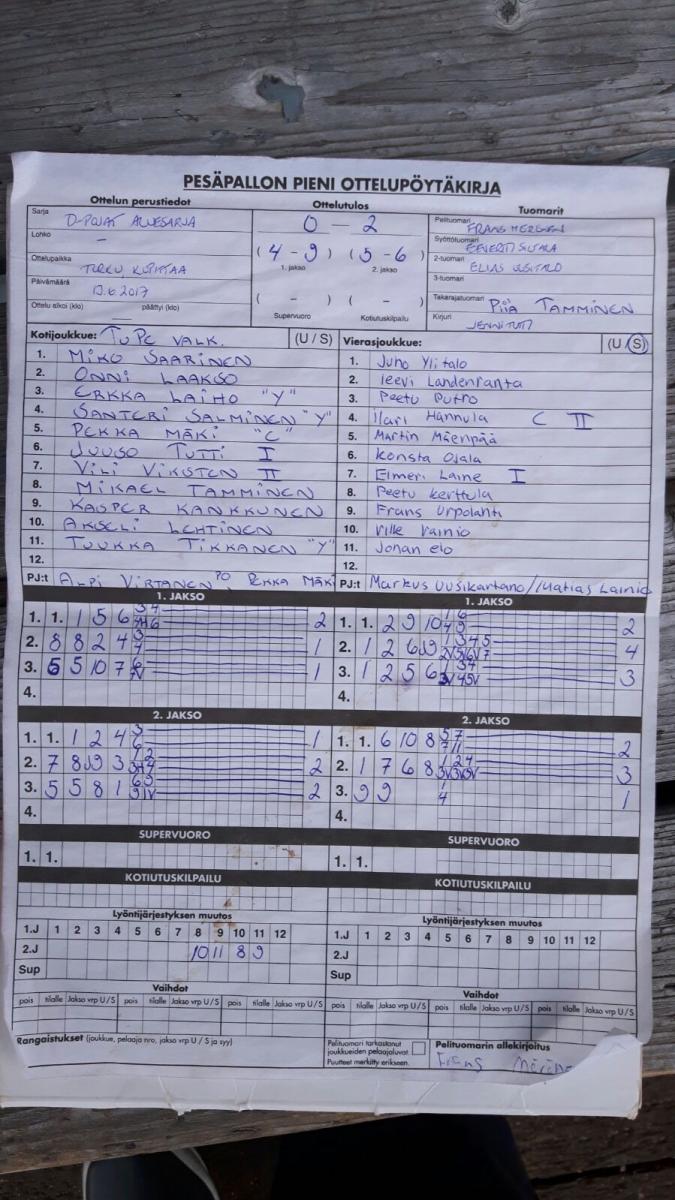 PESÄPALLON PIENI OTTELUPÖYTÄKIRJA
Ottelun perustiedot
Ottelutulos
Tuomarit
Sarja D-POJAT ALUESARJA
Lohko –
Ottelupaikka TURKU, KUPITTAA
Päivämäärä 13.6.2017
Ottelu alkoi (klo) päättyi (klo)
0 – 2
(4 - 9) (5 - 6)
1. jakso 2. jakso
( - ) ( - )
Supervuoro Kotiutuskilpailu
Pelituomari FRANS
Syöttötuomari
2-tuomari ELIAS UUSITALO
3-tuomari
Takarajatuomari PIIA TAMMINEN
Kirjuri JENNI TUTTI
Kotijoukkue: TuPe VALK. (U / S)
1. MIKO SAARINEN
2. ONNI LAAKSO
3. ERKKA LAIHO "Y"
4. SANTERI SALMINEN "Y"
5. PEKKA MÄKI "C"
6. JUUSO TUTTI I
7. VILI VIKSTEN II
8. MIKAEL TAMMINEN
9. KASPER KANKKUNEN
10. AKSELI LEHTINEN
11. TUUKKA TIKKANEN "Y"
12.
PJ:t ALPI VIRTANEN PEKKA MÄKI
Vierasjoukkue: (U / S)
1. Juho Ylitalo
2. Leevi Landenranta
3. Peetu Putro
4. Ilari Hannula C II
5. Martin Mäenpää
6. Konsta Ojala
7. Elmeri Laine I
8. Peetu Kerttula
9. Frans Urpolahti
10. Ville Vainio
11. Johan elo
12.
PJ:t Markus Uusikartano / Matias Lainio
1. JAKSO
1. 1. 1 5 6 2
2. 8 8 2 4 1
3. 5 5 10 7 1
4.
1. JAKSO
1. 1. 2 9 10 2
2. 1 2 6 4
3. 1 2 5 6 3
4.
2. JAKSO
1. 1. 1 2 4 1
2. 7 8 9 3 2
3. 5 5 8 1 2
4.
2. JAKSO
1. 1. 6 10 8 2
2. 1 7 6 8 3
3. 9 9 1
4.
SUPERVUORO
1. 1.
SUPERVUORO
1. 1.
KOTIUTUSKILPAILU
KOTIUTUSKILPAILU
Lyöntijärjestyksen muutos
1.J 1 2 3 4 5 6 7 8 9 10 11 12
2.J 10 11 8 9
Sup
Lyöntijärjestyksen muutos
1.J 1 2 3 4 5 6 7 8 9 10 11 12
2.J
Sup
Vaihdot
pois tilalle Jakso vrp U/S pois tilalle Jakso vrp U/S pois tilalle Jakso vrp U/S
Vaihdot
pois tilalle Jakso vrp U/S pois tilalle Jakso vrp U/S pois tilalle Jakso vrp U/S
Rangaistukset (joukkue, pelaaja nro, jakso vrp U / S ja syy)
Pelituomari tarkastanut
joukkueiden pelaajaluvat.
Puutteet merkitty erikseen.
Pelituomarin allekirjoitus
Frans